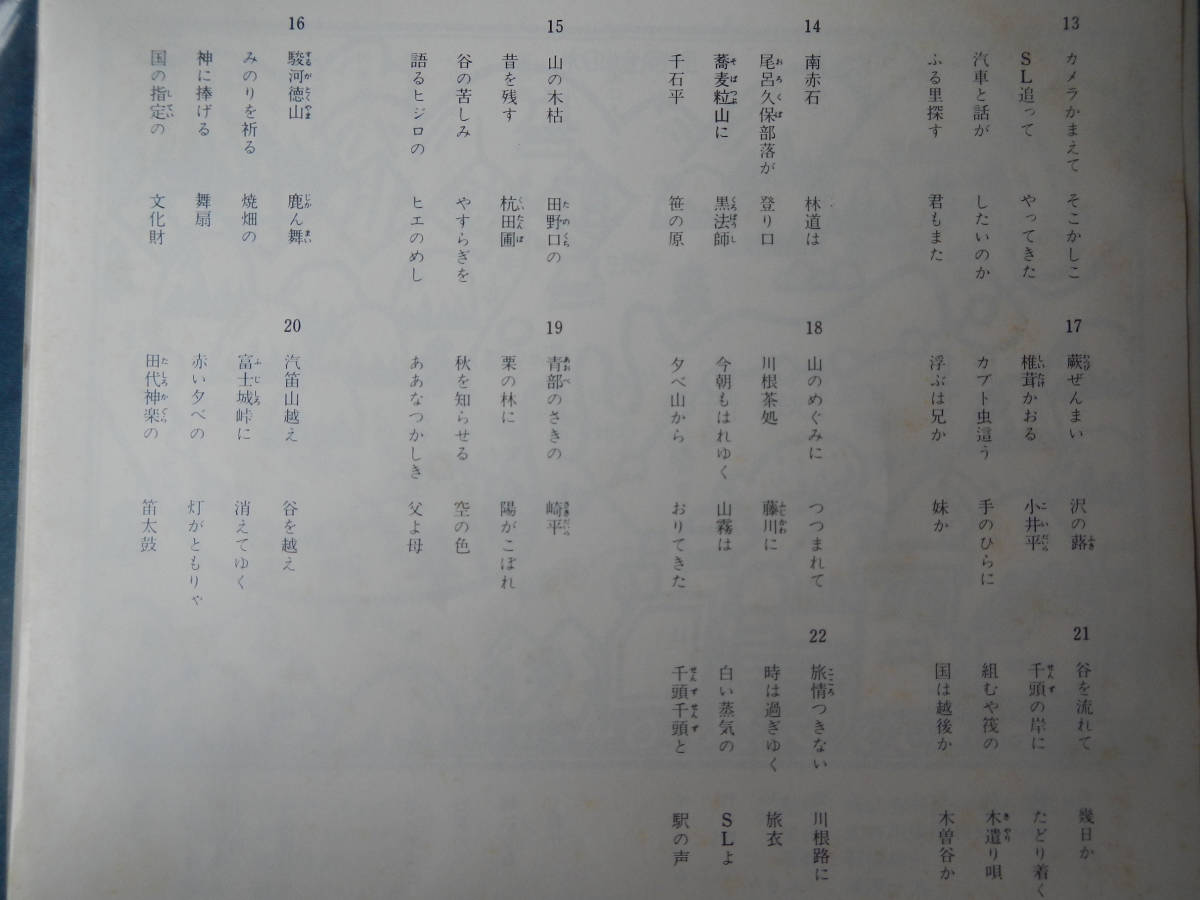 13
カメラかまえて　そこかしこ
SL追って　やってきた
汽車と話が　したいのか
ふる里探す　君もまた
14
南赤石　林道は
尾呂久保部落が　登り口
蕎麦粒山に　黒法師
千石平　笹の原
15
山の木枯　田野口の
昔を残す　杭田圃
谷の苦しみ　やすらぎを
語るヒジロの　ヒエのめし
16
駿河徳山　鹿ん舞
みのりを祈る　焼畑の
神に捧げる　舞扇
国の指定の　文化財
17
蕨ぜんまい　沢の蕗
椎茸かおる　小井平
カブト虫這う　手のひらに
浮ぶは兄か　妹か
18
山のめぐみに　つつまれて
川根茶処　藤川に
今朝もはれゆく　山霧は
夕べ山から　おりてきた
19
青部のさきの　崎平
栗の林に　陽がこぼれ
秋を知らせる　空の色
ああなつかしき　父よ母
20
汽笛山越え　谷を越え
富士城峠に　消えてゆく
赤い夕べの　灯がともりゃ
田代神楽の　笛太鼓
21
谷を流れて　幾日か
千頭の岸に　たどり着く
組むや筏の　木遣り唄
国は越後か　木曽谷か
22
旅情つきない　川根路に
時は過ぎゆく　旅衣
白い蒸気の　SLよ
千頭千頭と　駅の声